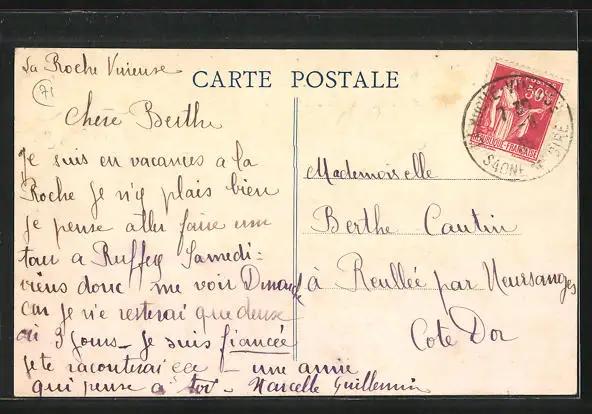 La Roche Vineuse
71
CARTE POSTALE
Chère Berthe
Je suis en vacances a la
Roche Je n'y plais bien
je pense aller faire un
tour a Ruffey Samedi-
viens donc me voir Dimanche
car je n'e resterai que deux
où 3 jours - Je suis fiancée
je te raconterai ece - une amie
qui pense a toi - Marcelle Guillemin
POSTES
50c
REPUBLIQUE FRANÇAISE
SAONE ET LOIRE
Mademoiselle
Berthe Cautin
à Reullée par Meursanges
Cote Dor